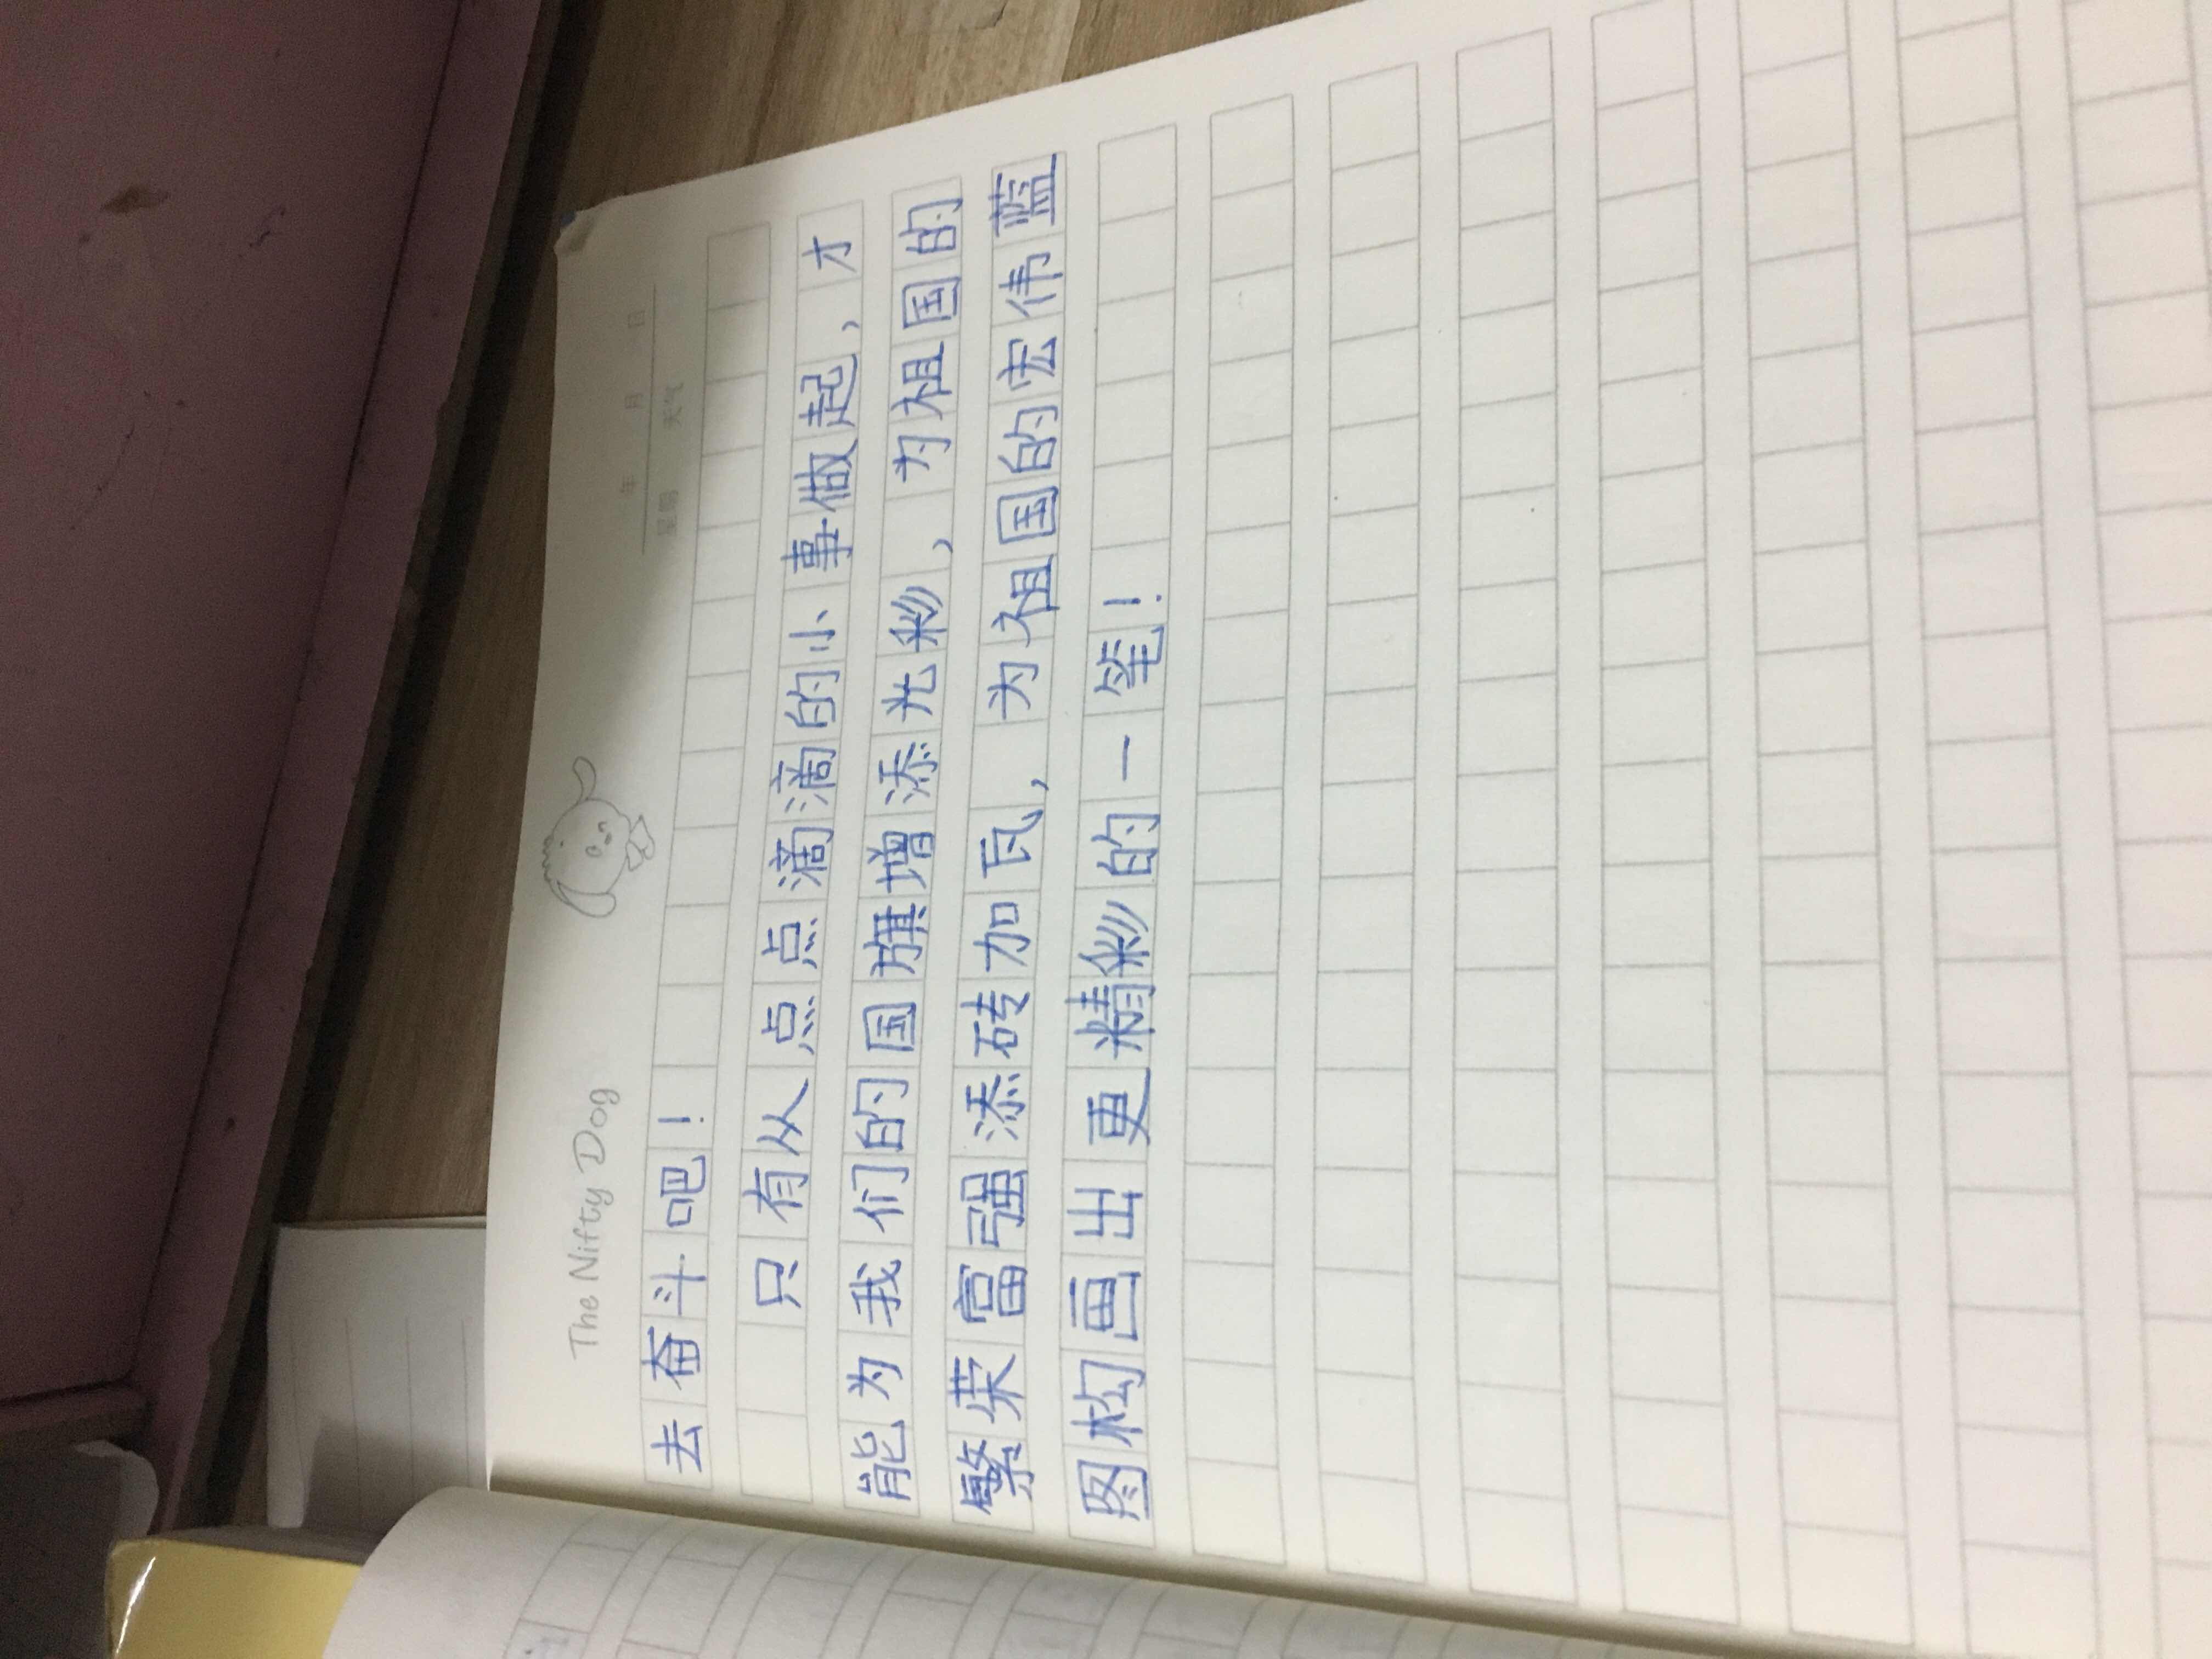 The Nifty Dog
年 月 日
星期 天气
去奋斗吧！
只有从点点滴滴的小事做起，才
能为我们的国旗增添光彩，为祖国的
繁荣富强添砖加瓦，为祖国的宏伟蓝
图构画出更精彩的一笔！